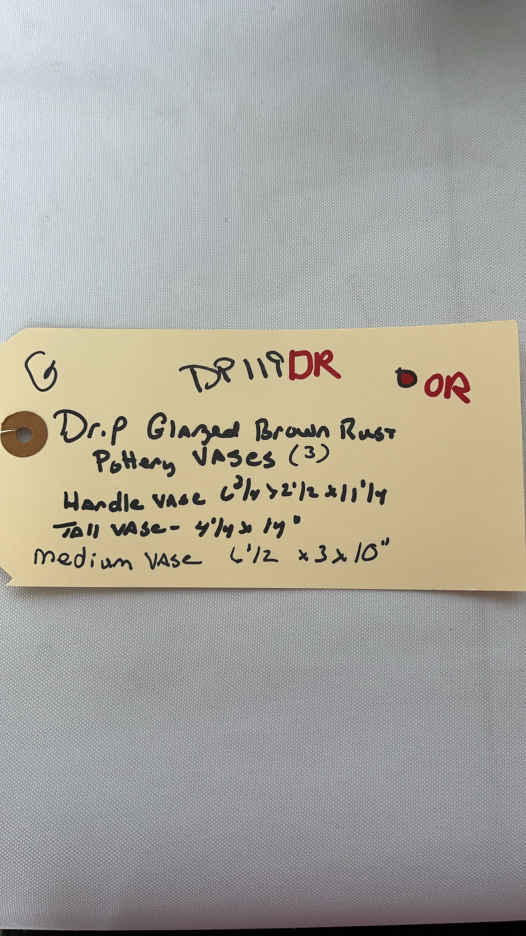 G DP119DR OR
Dr.P Glazed Brown Rust
Pottery VASES (3)
Handle VASE 6 3/4 x 2 1/2 x 11 1/4
Tall VASE- 4 1/4 x 14"
medium VASE 6 1/2 x 3 x 10"